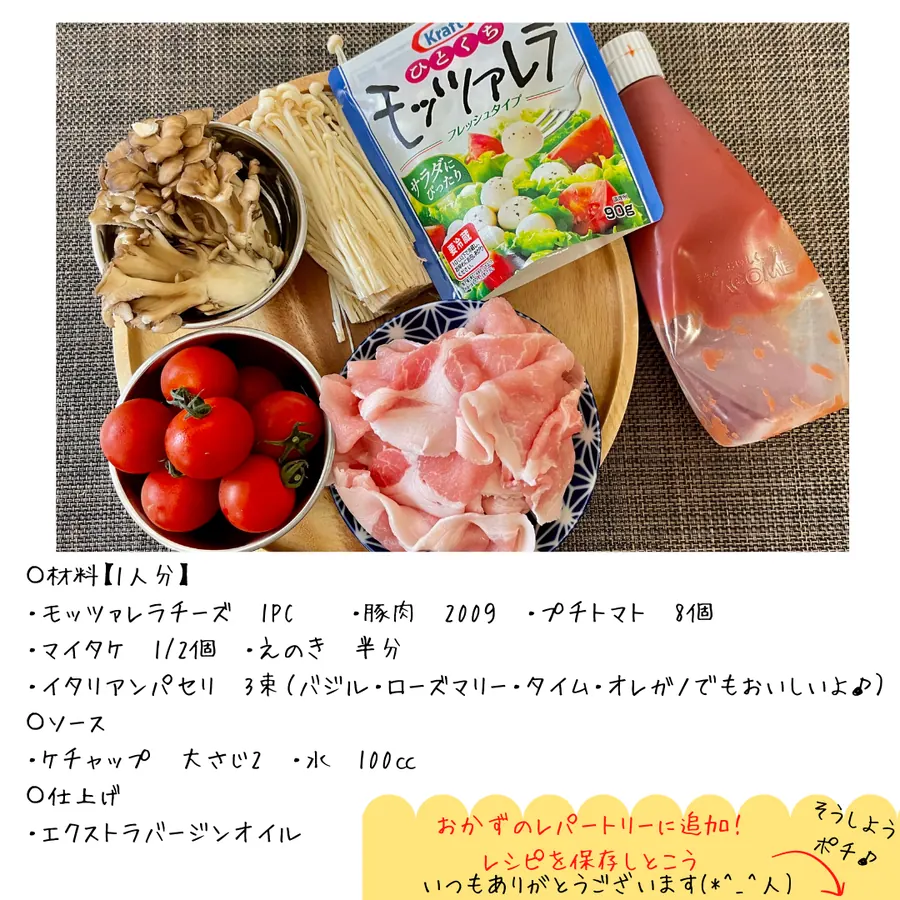 Kraft
ひとくち
モッツァレラ
フレッシュタイプ
サラダに
ぴったり
要冷蔵
90g
KAGOME
〇材料【1人分】
・モッツァレラチーズ 1PC ・豚肉 200g ・プチトマト 8個
・マイタケ 1/2個 ・えのき 半分
・イタリアンパセリ 3束(バジル・ローズマリー・タイム・オレガノでもおいしいよ♪)
〇ソース
・ケチャップ 大さじ2 ・水 100cc
〇仕上げ
・エクストラバージンオイル
おかずのレパートリーに追加!
レシピを保存しとこう
いつもありがとうございます(*^_^人)
そうしよう
ポチ♪